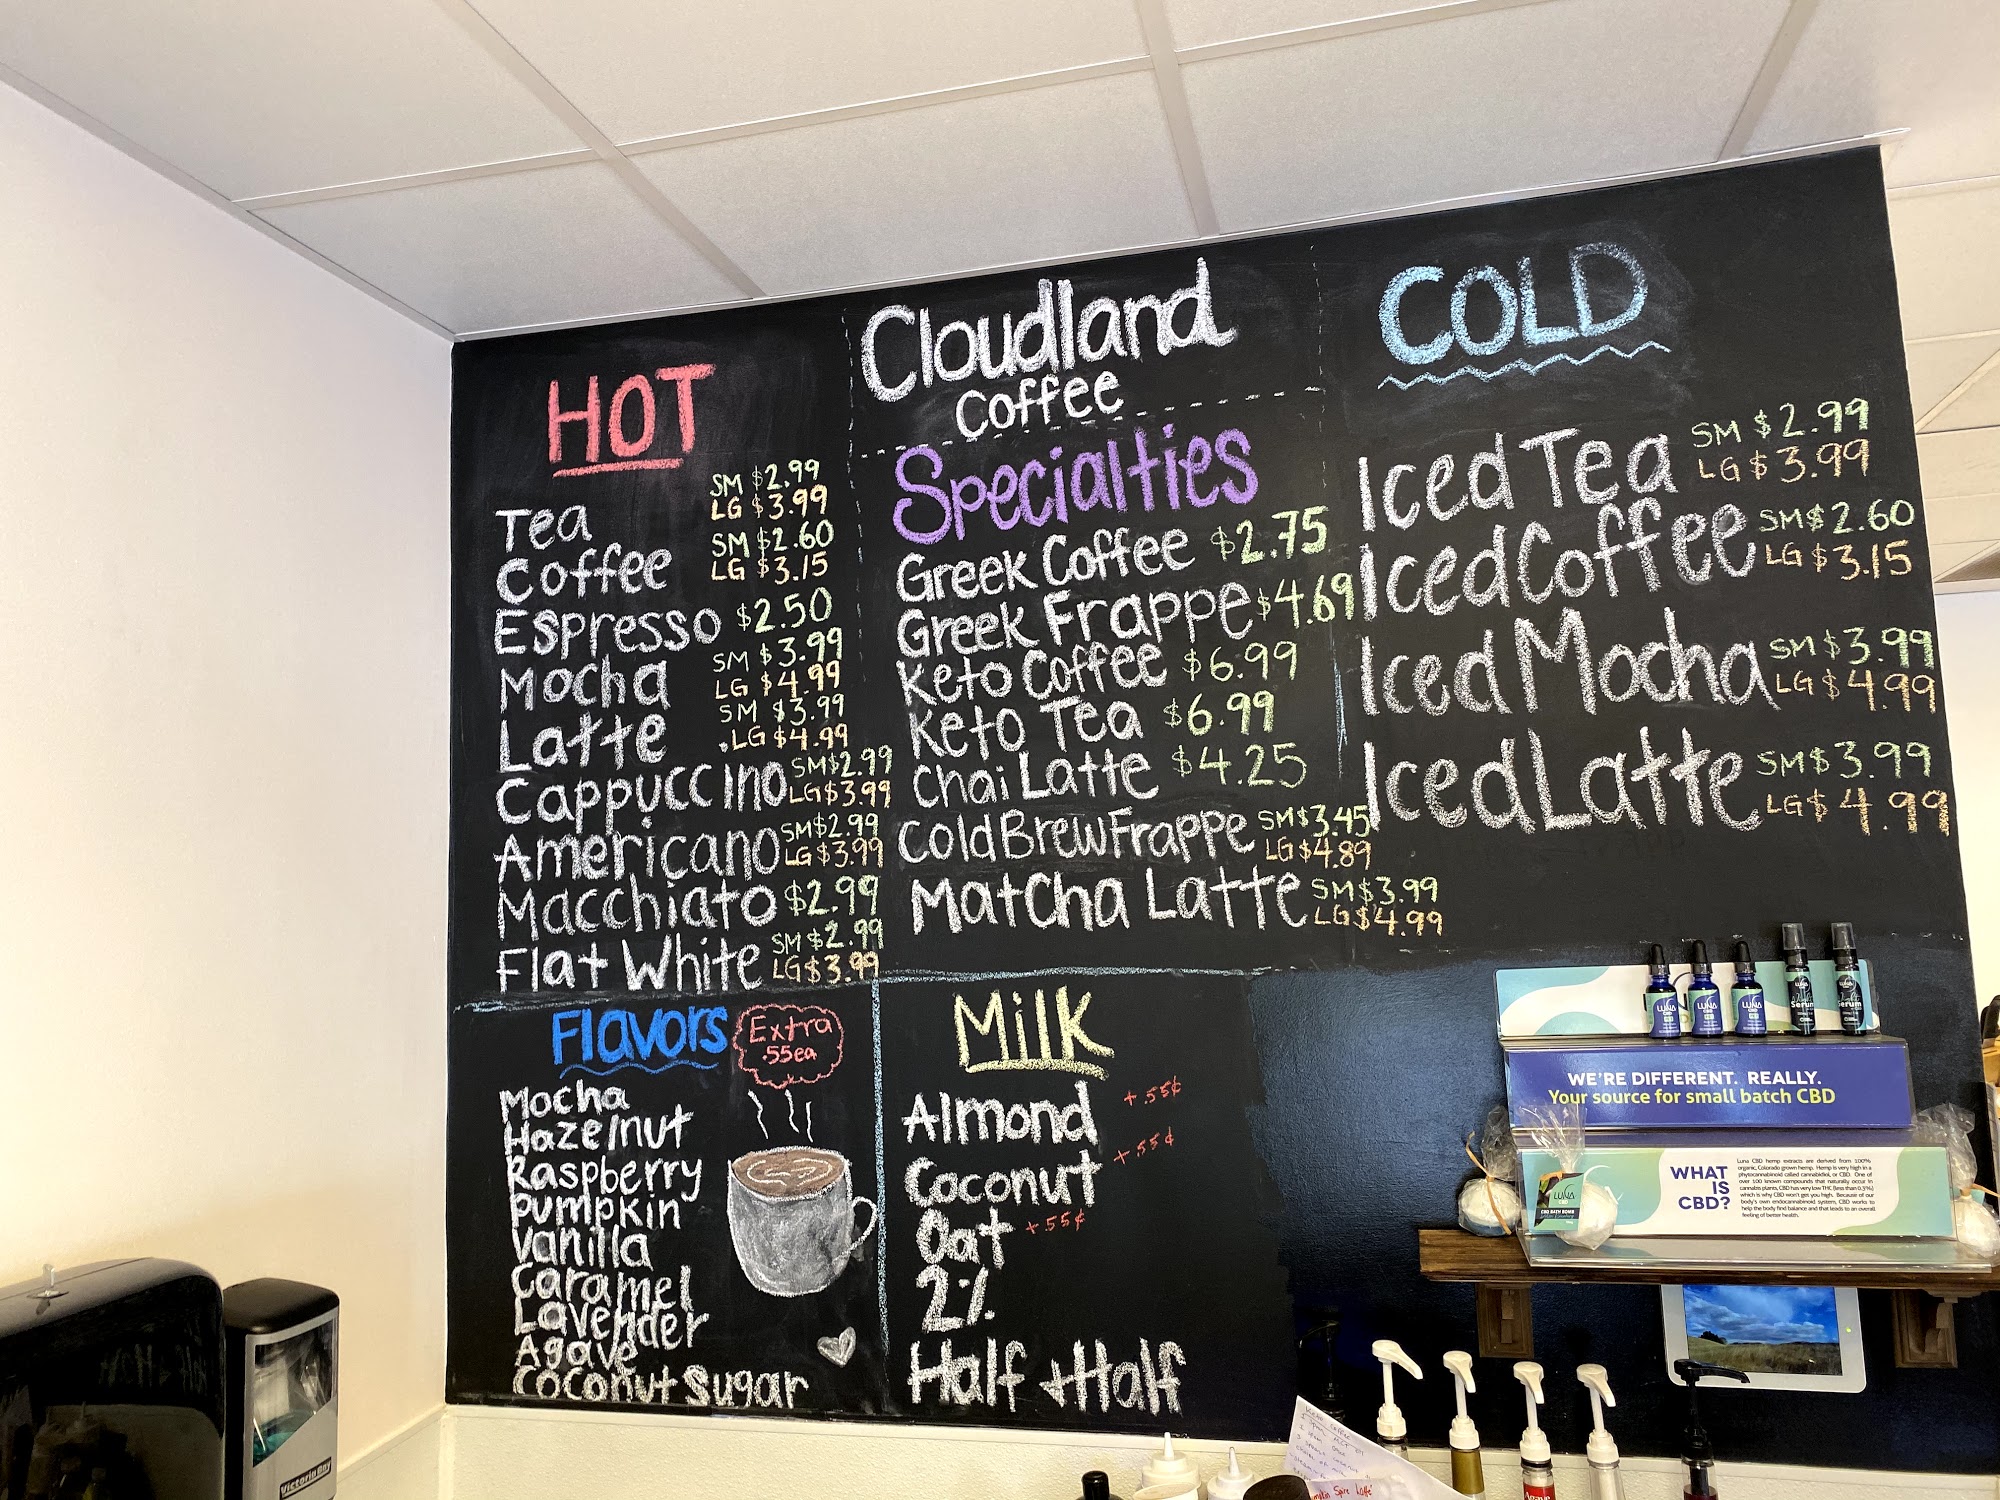 Cloudland
Coffee
HOT
Tea SM $2.99
LG $3.99
Coffee SM $2.60
LG $3.15
Espresso $2.50
Mocha SM $3.99
LG $4.99
Latte SM $3.99
.LG $4.99
Cappuccino SM $2.99
LG $3.99
Americano SM $2.99
LG $3.99
Macchiato $2.99
Flat White SM $2.99
LG $3.99
Specialties
Greek Coffee $2.75
Greek Frappe $4.69
Keto Coffee $6.99
Keto Tea $6.99
Chai Latte $4.25
Cold Brew Frappe SM $3.45
LG $4.89
Matcha Latte SM $3.99
LG $4.99
COLD
Iced Tea SM $2.99
LG $3.99
Iced Coffee SM $2.60
LG $3.15
Iced Mocha SM $3.99
LG $4.99
Iced Latte SM $3.99
LG $4.99
Flavors
Extra
.55ea
Mocha
Hazelnut
Raspberry
Pumpkin
Vanilla
Caramel
Lavender
Agave
Coconut Sugar
Milk
Almond +.55¢
Coconut +.55¢
Oat +.55¢
2%
Half + Half
LUNA
LUNA
LUNA
Serum
Serum
WE'RE DIFFERENT. REALLY.
Your source for small batch CBD
WHAT
IS
CBD?
Luna CBD hemp extracts are derived from 100%
organic, Colorado grown hemp. Hemp is very high in a
phytocannabinoid called cannabidiol, or CBD. One of
over 100 known compounds that naturally occur in
cannabis plants, CBD has very low THC (less than 0.3%)
which is why CBD won't get you high. Because of our
body's own endocannabinoid system, CBD works to
help the body find balance and that leads to an overall
feeling of better health.
LUNA
CBD BATH BOMB
Victoria Bay
Agave